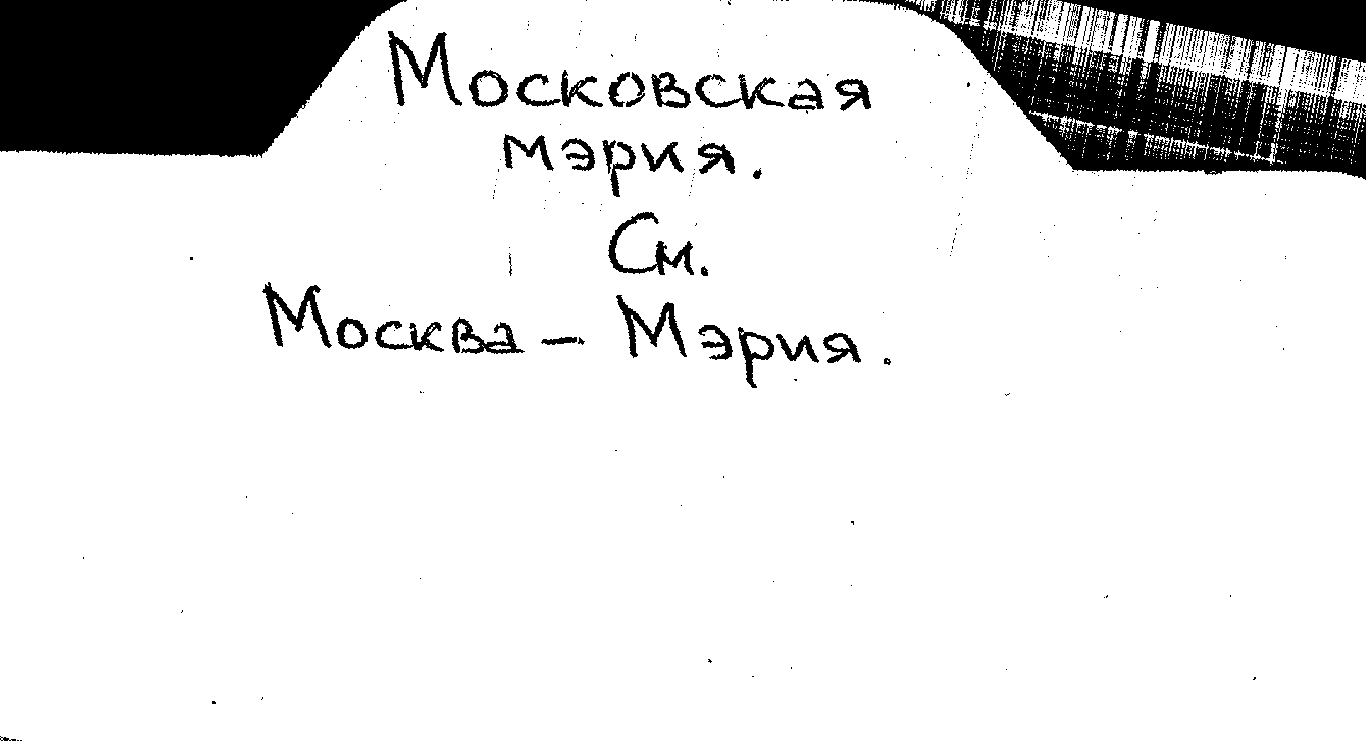 Московская
мэрия.
См.
Москва – Мэрия.